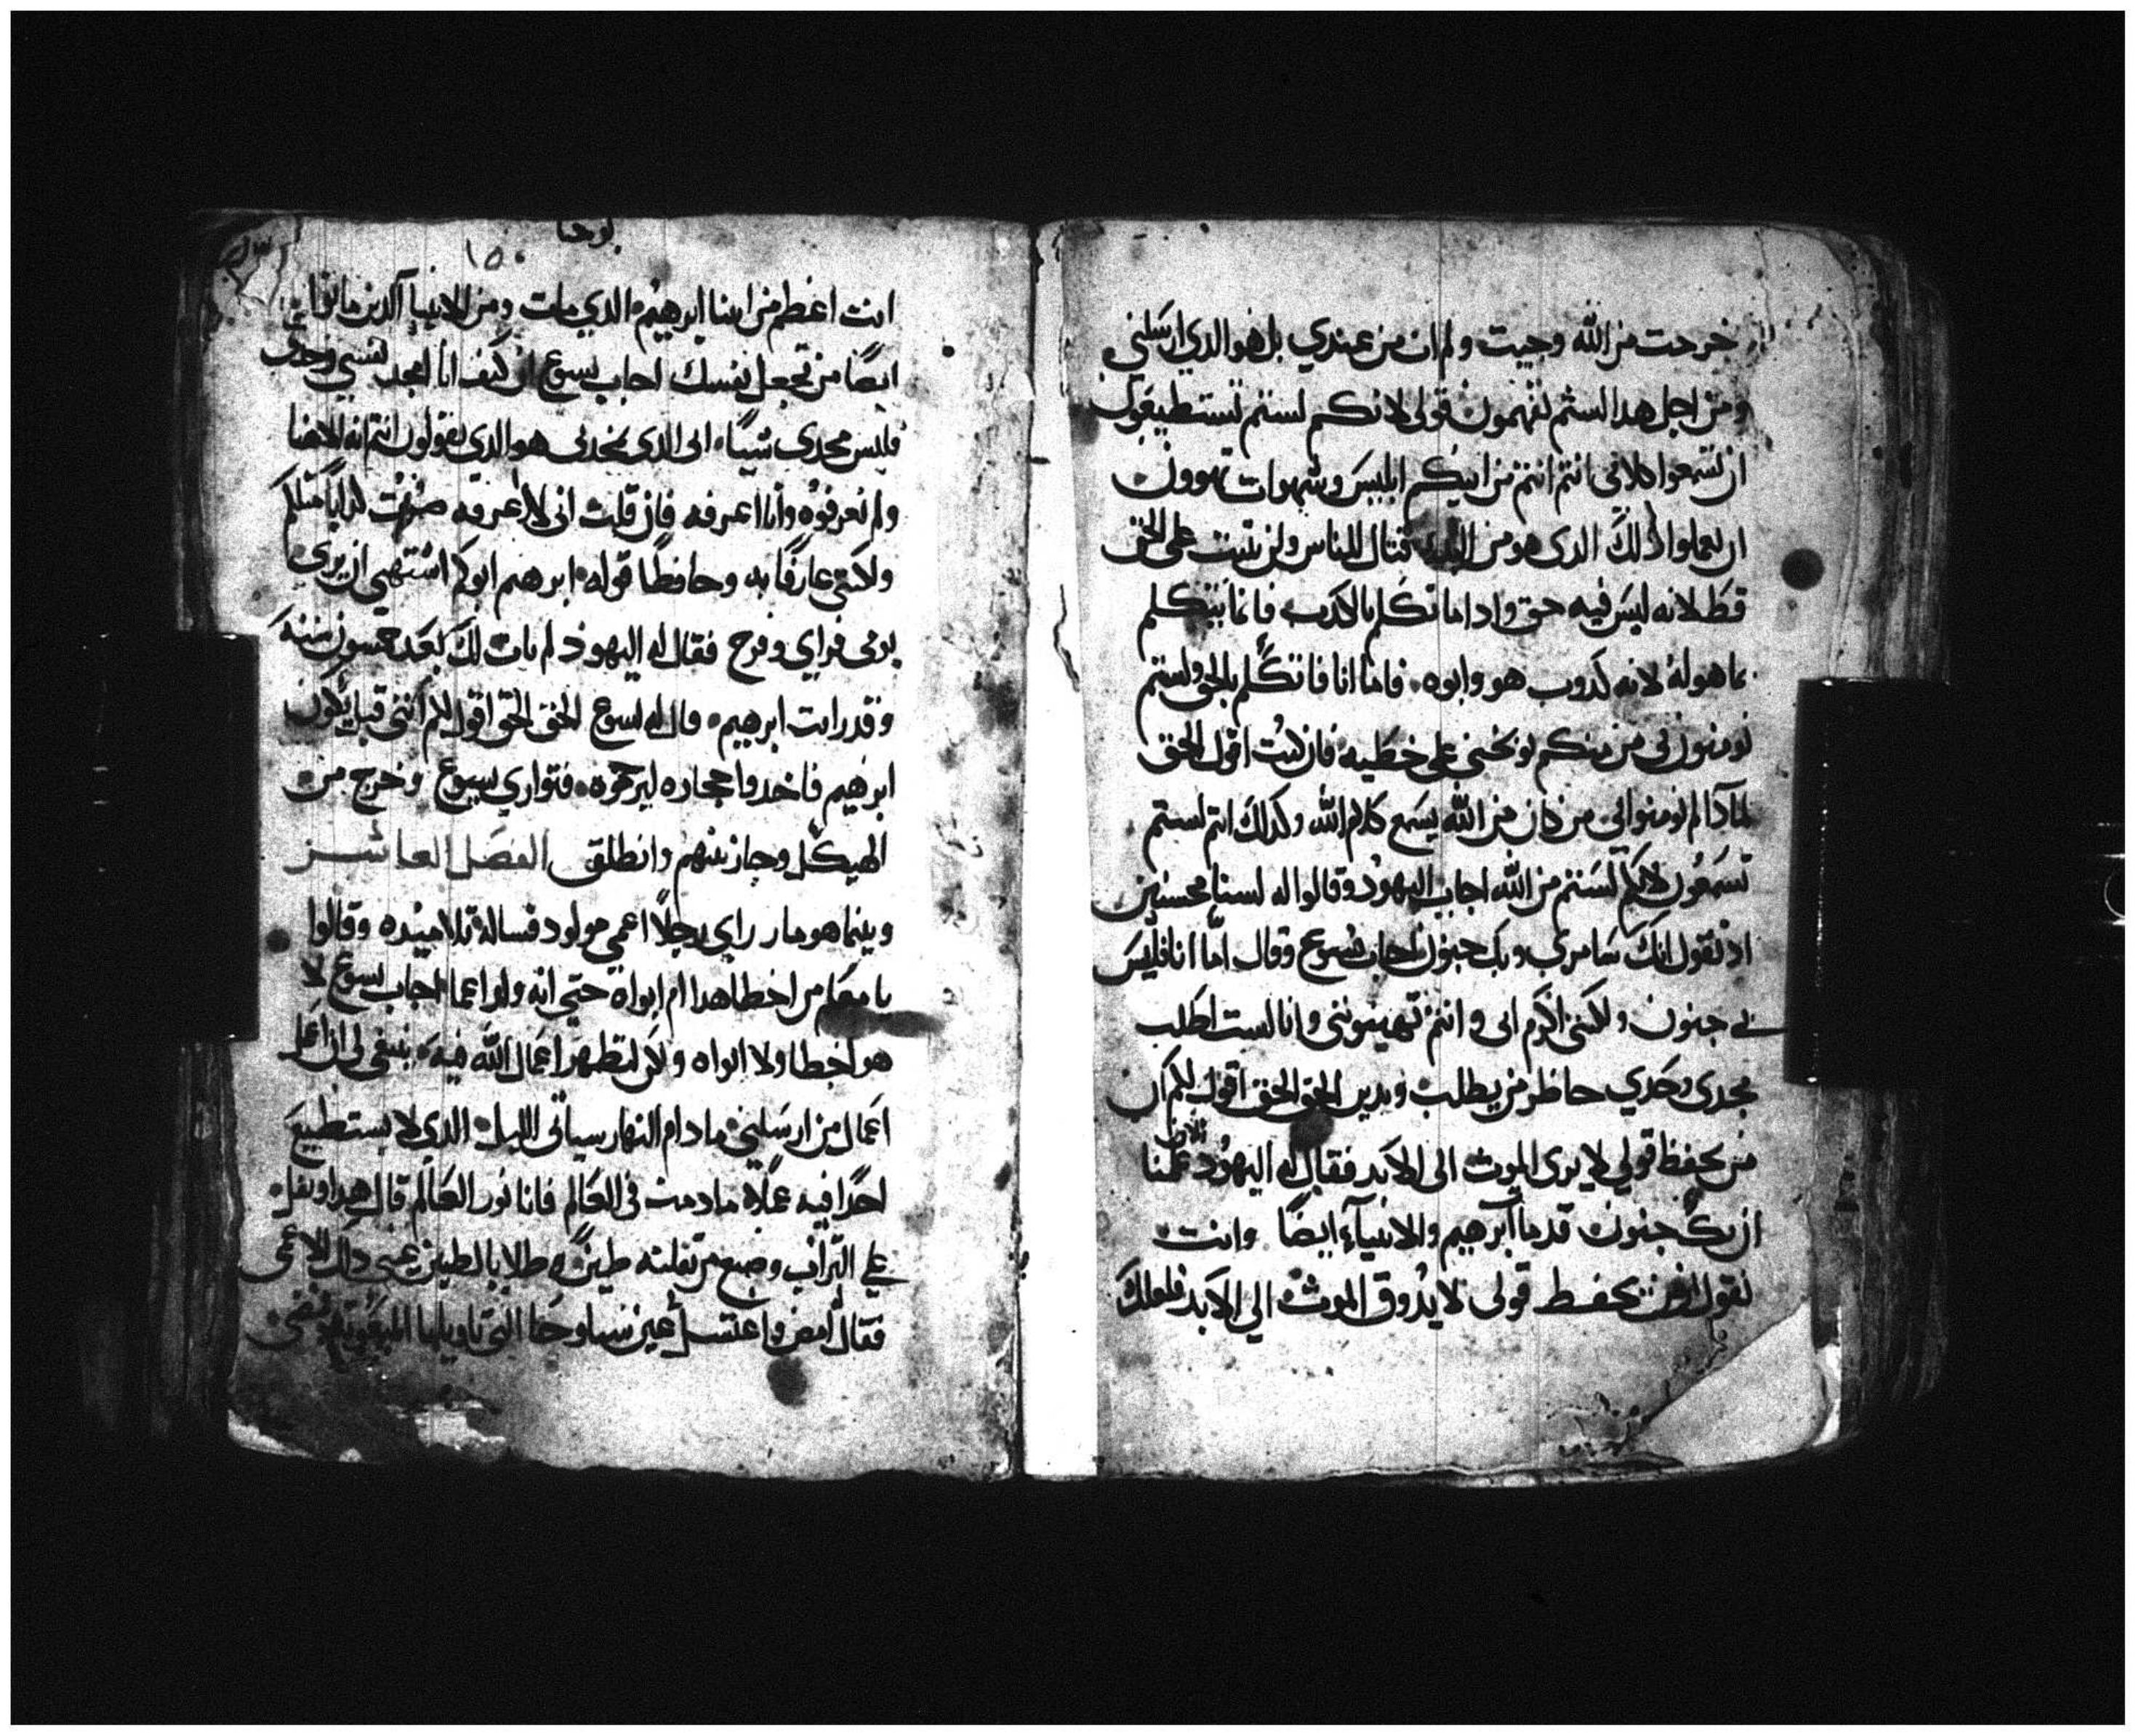 خرجت من الله وجيت ولم ات من عندي بل هو الدي ارسلني
ومن اجل هدا لستم تفهمون قولي لانكم لستم تستطيعون
ان تسمعوا كلامي انتم انتم من ابيكم ابليس وشهوات تهوون
ان تعملوا دلك الدى هو من البدي قتال للناس ولن يثبت على الحق
قط لانه ليس فيه حق وادا ما تكلم بالكدب فانما يتكلم
بما هو له لانه كدوب هو وابوه فاما انا فاتكلم بالحق ولستم
تومنون بي من منكم يوبخني على خطيه فان كنت اقول الحق
لمادا لم تومنوا بي من كان من الله يسمع كلام الله وكدلك انتم لستم
تسمعون لانكم لستم من الله اجاب اليهود وقالوا له لسنا محسنين
اد نقول انك سامري وبك جنون اجاب يسوع وقال اما انا فليس
بي جنون ولكنني اكرم ابي وانتم تهينونني وانا لست اطلب
مجدى وحدي حاظر من يطلب ويدين الحق الحق اقول لكم ان
من يحفظ قولي لا يرى الموت الى الابد فقال له اليهود الان علمنا
ان بك جنون قد مات ابرهيم والانبيآء ايضًا وانت
تقول ان من يحفظ قولي لا يدوق الموت الي الابد فلعلك
يوحنا
١٥٠
انت اعظم من ابينا ابرهيم الدي مات ومن الانبيآ الدين ماتوا
ايضًا من تجعل نفسك اجاب يسوع ان كنت انا امجد نفسي وحدى
فليس مجدي شيًا ابى الدى يمجدنى هو الدي تقولون انتم انه الاهنا
ولم تعرفوه وانا اعرفه فان قلت انى لا اعرفه صرت كدابًا مثلكم
ولاكني عارفًا به وحافظًا قوله ابرهيم ابوكم اشتهي ان يرى
يومى فراي وفرح فقال له اليهود لم يات لك بعد خمسون سنه
وقد رايت ابرهيم قال له يسوع الحق الحق اقول لكم انني قبل يكون
ابرهيم فاخدوا حجاره ليرجموه فتواري يسوع وخرج من
الهيكل وجاز بينهم وانطلق الفصل العاشر
وبينما هو مار راي رجلًا اعمي مولود فساله تلاميده وقالوا
يا معلم من اخطا هدا ام ابواه حتي انه ولد اعما اجاب يسوع لا
هو اخطا ولا ابواه ولكن لتظهر اعمال الله فيه ينبغى لى ان اعمل
اعمال من ارسلني ما دام النهار سياتى الليل الدي لا يستطيع
احدًا فيه عملًا ما دمت في العالم فانا نور العالم قال هدا وتفل
علي التراب وصنع من تفلته طين وطلا بالطين عينى داك الاعمى
فقال امض واغتسل عين سيلوحا التي تاويلها المبعوثه فمضى